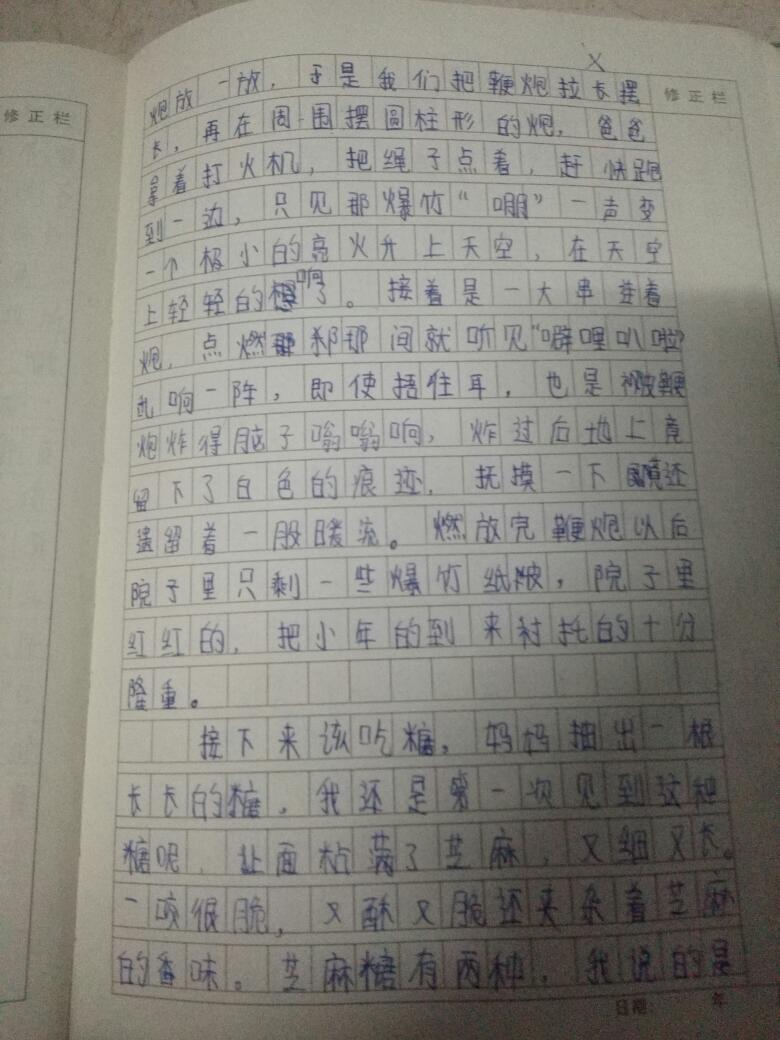 修正栏
修正栏
X
炮放一放，于是我们把鞭炮拉长摆
长，再在周围摆圆柱形的炮，爸爸
拿着打火机，把绳子点着，赶快跑
到一边，只见那爆竹“嘣”一声变
一个极小的亮火升上天空，在天空
上轻轻的响了。接着是一大串
炮，点燃刹那间就听见“噼哩叭啦”
乱响一阵，即使捂住耳，也是被鞭
炮炸得脑子嗡嗡响，炸过后地上竟
留下了白色的痕迹，抚摸一下竟还
遗留着一股暖流。燃放完鞭炮以后
院子里只剩一些爆竹纸皮，院子里
红红的，把小年的到来衬托的十分
隆重。
接下来该吃糖，妈妈抽出一根
长长的糖。我还是第一次见到这种
糖呢，上面粘满了芝麻，又细又长。
一咬很脆，又酥又脆还夹杂着芝麻
的香味。芝麻糖有两种，我说的是
日期： 年